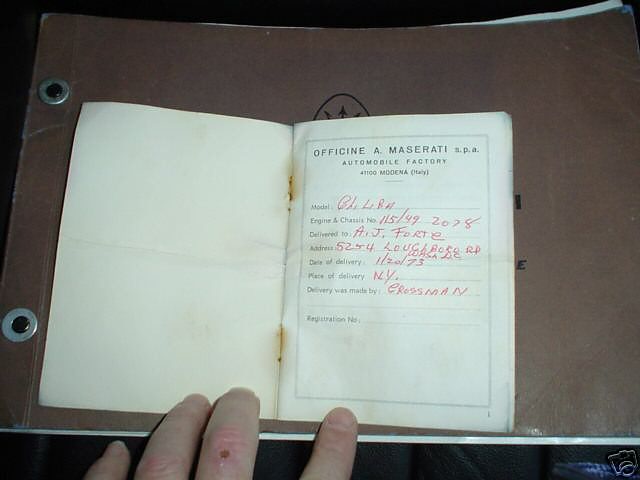 OFFICINE A. MASERATI s.p.a.
AUTOMOBILE FACTORY
41100 MODENA (Italy)
Model:
Engine & Chassis No. 115/49 2078
Delivered to: A.J. FORTE
Address 5254 LOUGHBORO RD
WASH D.C
Date of delivery: 1/20/73
Place of delivery N.Y.
Delivery was made by: CROSSMAN
Registration No:
1
E